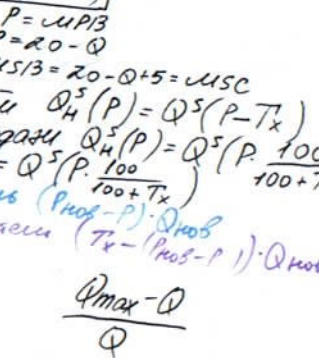 P = MPB
P = 20 - Q
MSB = 20 - Q + 5 = MSC
Q_н^S (P) = Q^S (P - T_x)
Q_н^S (P) = Q^S (P · 100
100 + T
= Q^S (P · 100 / (100 + T_x))
(P_нов - P) · Q_нов
(T_x - (P_нов - P)) · Q_нов
(Q_max - Q) / Q